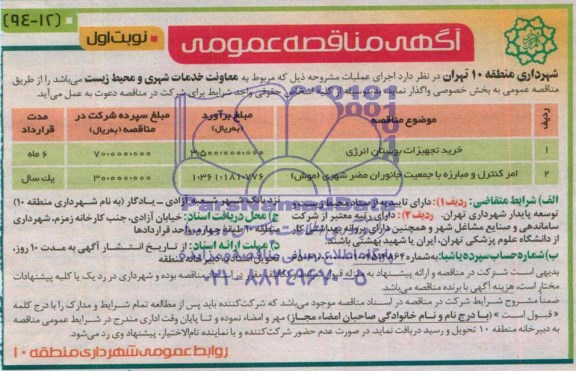 (۹۴-۱۲)
نوبت اول
آگهی مناقصه عمومی
شهرداری منطقه ۱۰ تهران در نظر دارد اجرای عملیات مشروحه ذیل که مربوط به معاونت خدمات شهری و محیط زیست می‌باشد را از طریق
مناقصه عمومی به بخش خصوصی واگذار نماید. اشخاص حقوقی واجد شرایط برای شرکت در مناقصه دعوت به عمل می‌آید.
ردیف موضوع مناقصه مبلغ برآورد (به‌ریال) مبلغ سپرده شرکت در مناقصه (به‌ریال) مدت قرارداد
۱ خرید تجهیزات بوستان انرژی ۶ ماه
۲ امر کنترل و مبارزه با جمعیت جانوران مضر شهری (موش) یک سال
الف) شرایط متقاضی: ردیف ۱): دارای تاییدیه از ستاد محیط زیست و
توسعه پایدار شهرداری تهران. ردیف ۲): دارای رتبه معتبر از شرکت
ساماندهی و صنایع مشاغل شهر و همچنین دارای پروانه بهداشت کار
از دانشگاه علوم پزشکی تهران، ایران یا شهید بهشتی باشند.
ب) شماره حساب سپرده یا شبا:
نزد بانک شهر شعبه آزادی - یادگار (به نام شهرداری منطقه ۱۰)
ج) محل دریافت اسناد: خیابان آزادی، جنب کارخانه زمزم، شهرداری
منطقه ۱۰ طبقه چهارم واحد قراردادها
د) مهلت ارائه اسناد: از تاریخ انتشار آگهی به مدت ۱۰ روز،
۰۲۱-۸۸۳۴۹۶۷۰-۵
بدیهی است شرکت در مناقصه و ارائه پیشنهاد به منزله قبول مناقصه بوده و شهرداری در رد یک یا کلیه پیشنهادات
مختار است، هزینه آگهی با برنده مناقصه می‌باشد.
ضمناً مشروح شرایط شرکت در مناقصه در اسناد مناقصه موجود می‌باشد که شرکت‌کننده باید پس از مطالعه تمام شرایط و مدارک را با درج کلمه
« قبول است » (با درج نام و نام خانوادگی صاحبان امضاء مجاز) مهر و امضاء نموده و تا پایان وقت اداری مندرج در شرایط عمومی مناقصه
به دبیرخانه منطقه ۱۰ تحویل و رسید دریافت نماید. در صورت عدم حضور شرکت‌کننده و یا نماینده تام‌الاختیار، پیشنهاد وی رد می‌شود.
روابط عمومی شهرداری منطقه ۱۰